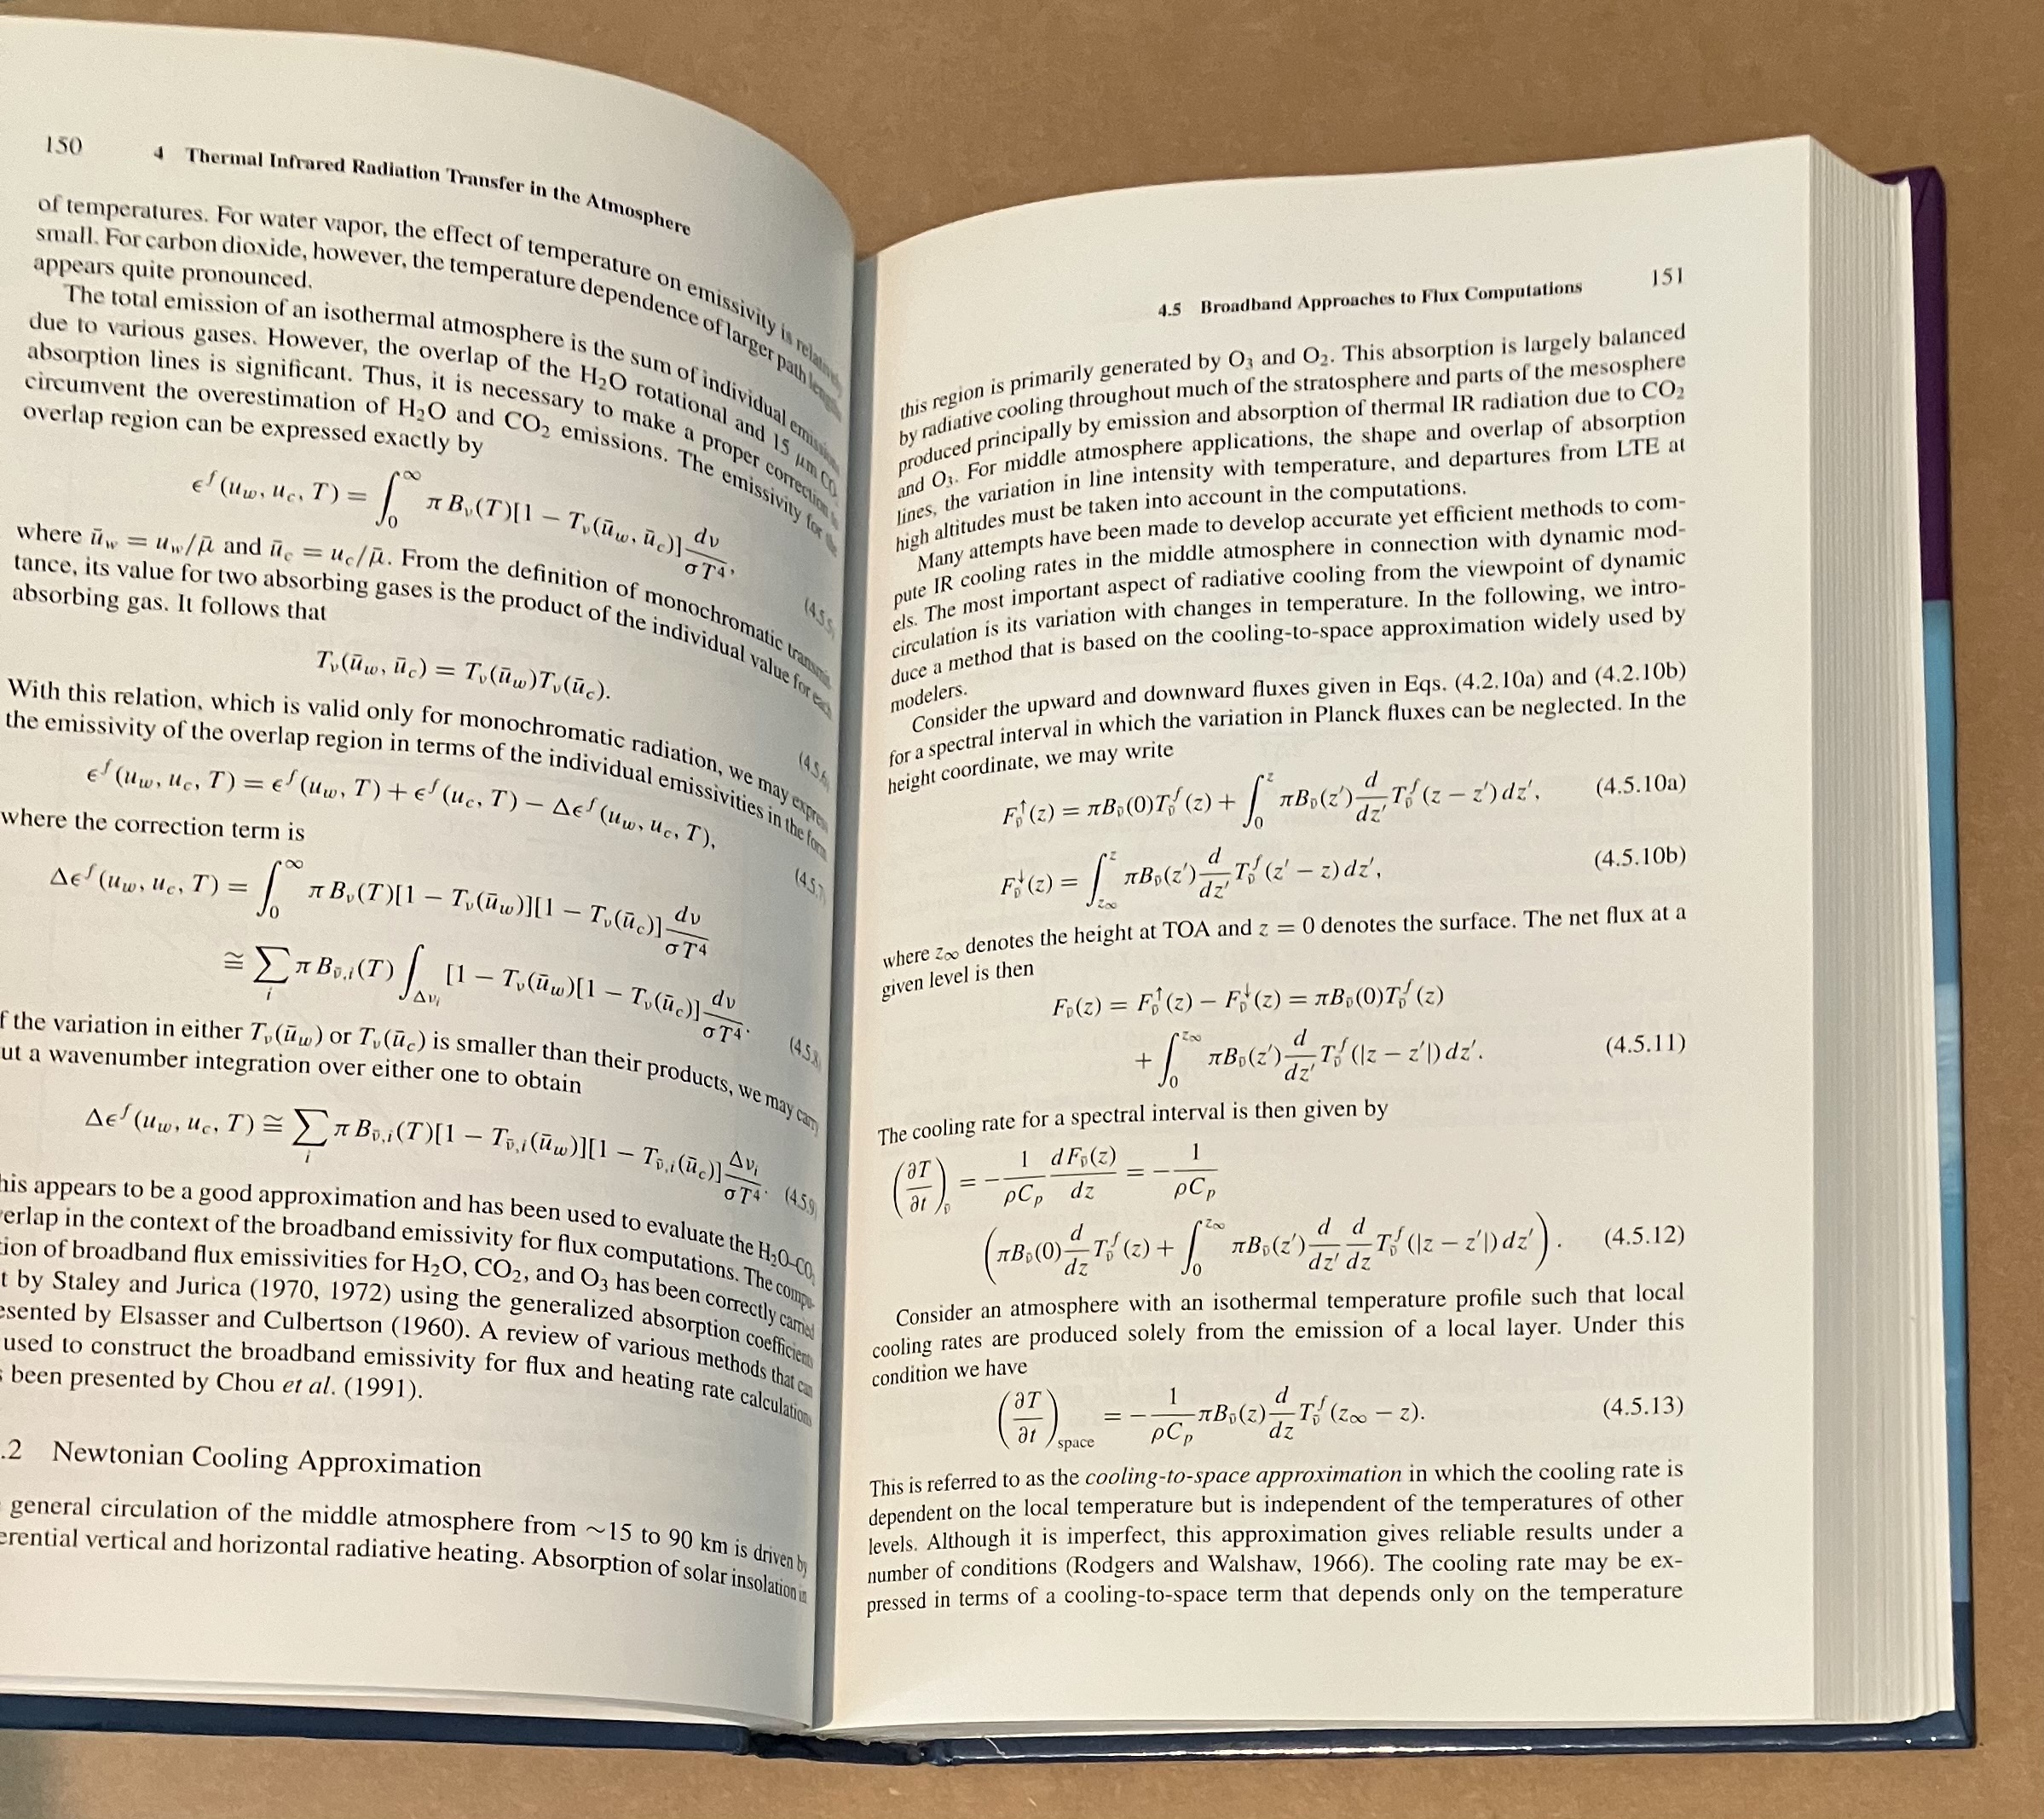 150
4 Thermal Infrared Radiation Transfer in the Atmosphere
of temperatures. For water vapor, the effect of temperature on emissivity is relatively
small. For carbon dioxide, however, the temperature dependence of larger path lengths
appears quite pronounced.
The total emission of an isothermal atmosphere is the sum of individual emissions
due to various gases. However, the overlap of the H₂O rotational and 15 μm CO₂
absorption lines is significant. Thus, it is necessary to make a proper correction to
circumvent the overestimation of H₂O and CO₂ emissions. The emissivity for the
overlap region can be expressed exactly by
ϵ^f(u_w, u_c, T) = ∫_0^∞ π B_ν(T)[1 − T_ν(ū_w, ū_c)] dν/σT⁴, (4.5.5)
where ū_w = u_w/μ̄ and ū_c = u_c/μ̄. From the definition of monochromatic transmit-
tance, its value for two absorbing gases is the product of the individual value for each
absorbing gas. It follows that
T_ν(ū_w, ū_c) = T_ν(ū_w)T_ν(ū_c). (4.5.6)
With this relation, which is valid only for monochromatic radiation, we may express
the emissivity of the overlap region in terms of the individual emissivities in the form
ϵ^f(u_w, u_c, T) = ϵ^f(u_w, T) + ϵ^f(u_c, T) − Δϵ^f(u_w, u_c, T), (4.5.7)
where the correction term is
Δϵ^f(u_w, u_c, T) = ∫_0^∞ π B_ν(T)[1 − T_ν(ū_w)][1 − T_ν(ū_c)] dν/σT⁴
≅ ∑_i π B_ν̄,i(T) ∫_Δν_i [1 − T_ν(ū_w)[1 − T_ν(ū_c)] dν/σT⁴. (4.5.8)
f the variation in either T_ν(ū_w) or T_ν(ū_c) is smaller than their products, we may carry
ut a wavenumber integration over either one to obtain
Δϵ^f(u_w, u_c, T) ≅ ∑_i π B_ν̄,i(T)[1 − T_ν̄,i(ū_w)][1 − T_ν̄,i(ū_c)] Δν_i/σT⁴. (4.5.9)
his appears to be a good approximation and has been used to evaluate the H₂O–CO₂
verlap in the context of the broadband emissivity for flux computations. The compu-
tion of broadband flux emissivities for H₂O, CO₂, and O₃ has been correctly carried
t by Staley and Jurica (1970, 1972) using the generalized absorption coefficients
esented by Elsasser and Culbertson (1960). A review of various methods that can
used to construct the broadband emissivity for flux and heating rate calculations
s been presented by Chou et al. (1991).
.2 Newtonian Cooling Approximation
general circulation of the middle atmosphere from ∼15 to 90 km is driven by
erential vertical and horizontal radiative heating. Absorption of solar insolation in
4.5 Broadband Approaches to Flux Computations
151
this region is primarily generated by O₃ and O₂. This absorption is largely balanced
by radiative cooling throughout much of the stratosphere and parts of the mesosphere
produced principally by emission and absorption of thermal IR radiation due to CO₂
and O₃. For middle atmosphere applications, the shape and overlap of absorption
lines, the variation in line intensity with temperature, and departures from LTE at
high altitudes must be taken into account in the computations.
Many attempts have been made to develop accurate yet efficient methods to com-
pute IR cooling rates in the middle atmosphere in connection with dynamic mod-
els. The most important aspect of radiative cooling from the viewpoint of dynamic
circulation is its variation with changes in temperature. In the following, we intro-
duce a method that is based on the cooling-to-space approximation widely used by
modelers.
Consider the upward and downward fluxes given in Eqs. (4.2.10a) and (4.2.10b)
for a spectral interval in which the variation in Planck fluxes can be neglected. In the
height coordinate, we may write
F_ν̄^↑(z) = πB_ν̄(0)T_ν̄^f(z) + ∫_0^z πB_ν̄(z′) d/dz′ T_ν̄^f(z − z′) dz′, (4.5.10a)
F_ν̄^↓(z) = ∫_z∞^z πB_ν̄(z′) d/dz′ T_ν̄^f(z′ − z) dz′, (4.5.10b)
where z∞ denotes the height at TOA and z = 0 denotes the surface. The net flux at a
given level is then
F_ν̄(z) = F_ν̄^↑(z) − F_ν̄^↓(z) = πB_ν̄(0)T_ν̄^f(z)
+ ∫_0^z∞ πB_ν̄(z′) d/dz′ T_ν̄^f(|z − z′|) dz′. (4.5.11)
The cooling rate for a spectral interval is then given by
(∂T/∂t)_ν̄ = − 1/ρC_p dF_ν̄(z)/dz = − 1/ρC_p
(πB_ν̄(0) d/dz T_ν̄^f(z) + ∫_0^z∞ πB_ν̄(z′) d/dz′ d/dz T_ν̄^f(|z − z′|) dz′). (4.5.12)
Consider an atmosphere with an isothermal temperature profile such that local
cooling rates are produced solely from the emission of a local layer. Under this
condition we have
(∂T/∂t)_space = − 1/ρC_p πB_ν̄(z) d/dz T_ν̄^f(z∞ − z). (4.5.13)
This is referred to as the cooling-to-space approximation in which the cooling rate is
dependent on the local temperature but is independent of the temperatures of other
levels. Although it is imperfect, this approximation gives reliable results under a
number of conditions (Rodgers and Walshaw, 1966). The cooling rate may be ex-
pressed in terms of a cooling-to-space term that depends only on the temperature